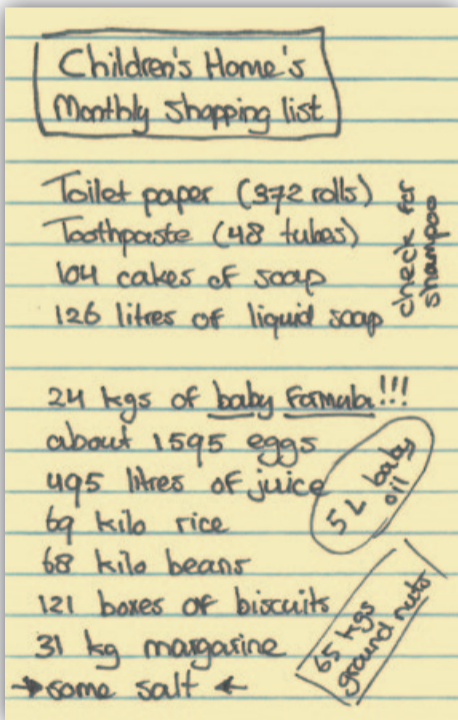 Children's Home's
Monthly Shopping list
Toilet paper (372 rolls)
Toothpaste (48 tubes)
104 cakes of soap
126 litres of liquid soap
check for
shampoo
24 kgs of baby formula!!!
about 1595 eggs
495 litres of juice
69 kilo rice
68 kilo beans
121 boxes of biscuits
31 kg margarine
→some salt←
5L baby
oil
65 kgs
ground nuts